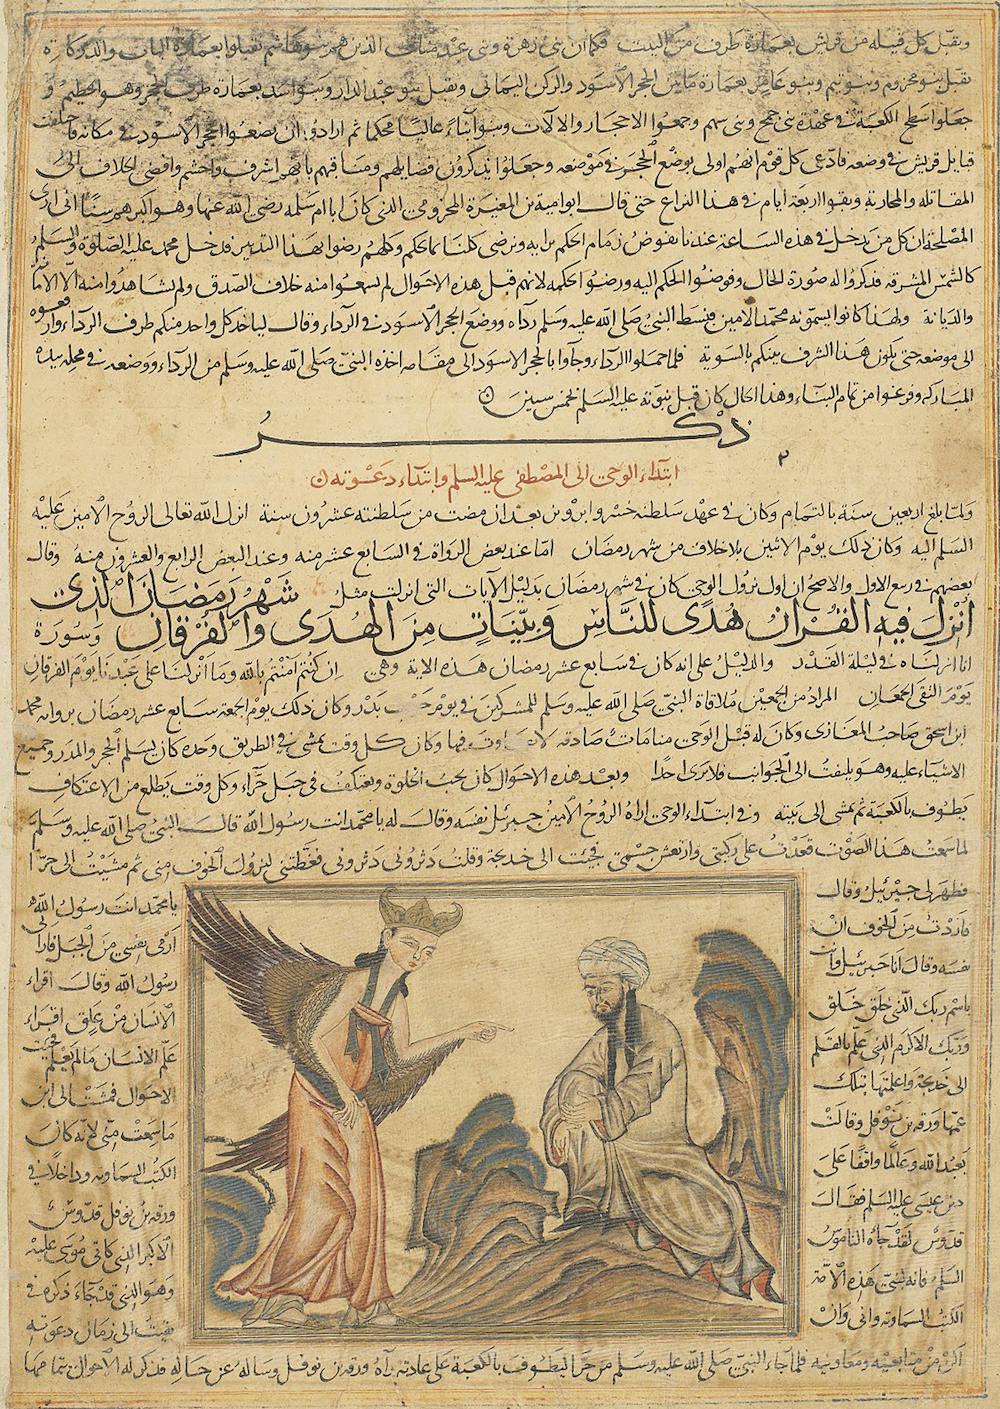 وتقبل كل قبيلة من قريش بعمارة طرف من البيت فكان بنى زهرة وبنى عبد مناف الذين هم بنو هاشم تقبلوا بعمارة الباب والذكر كانه
تقبل بنو مخزوم وبنو تيم وبنو عامر بعمارة ما بين الحجر الاسود والركن اليمانى وتقبل بنو عبد الدار وبنو اسد بعمارة طرف الحجر وهو الحطيم و
جعلوا سطح الكعبة فى عهدة بنى جمح وبنى سهم وجمعوا الاحجار والالات وبنوا بناء عاليا محكما ثم ارادوا ان يضعوا الحجر الاسود فى مكانه فاختلفت
قبايل قريش فى وضعه فادعى كل قوم انهم اولى بوضع الحجر فى موضعه وجعلوا يذكرون فضايلهم ومناقبهم بانهم اشرف واحشم وافضى الخلاف الى
المقاتله والمحاربة وبقوا اربعة ايام فى هذا النزاع حتى قال ابو امية بن المغيرة المخزومى الذى كان ابا ام سلمه رضى الله عنها وهو اكبرهم سنا انى ارى
المصلحة ان كل من يدخل فى هذه الساعة عندنا نفوض زمام الحكم برايه ونرضى كلنا بما حكم وكلهم رضوا بهذا التدبير فدخل محمد عليه الصلوة والسلم
كالشمس المشرقه فذكروا له صورة الحال وفوضوا الحكم اليه ورضوا بحكمه لانهم قبل هذه الاحوال لم يسمعوا منه خلاف الصدق ولم يشاهدوا منه الا الامانة
والديانة ولهذا كانوا يسمونه محمد الامين فبسط النبى صلى الله عليه وسلم رداه ووضع الحجر الاسود فى الرداء وقال لياخذ كل واحد منكم طرف الرداء وارفعوه
الى موضعه حتى يكون هذا الشرف بينكم بالسوية فلما حملوا الرداء وجاوا بالحجر الاسود الى مقامه اخذه النبى صلى الله عليه وسلم من الرداء ووضعه فى محله بيده
المباركه وفرغوا من تمام البناء وهذا الحال كان قبل نبوته عليه السلم بخمس سنين
ذكر
ابتداء الوحى الى المصطفى عليه السلم وابتداء دعوته
ولما بلغ اربعين سنة بالتمام وكان فى عهد سلطنه خسرو ابرويز بعد ان مضت من سلطنته عشرون سنة انزل الله تعالى الروح الامين عليه
السلم اليه وكان ذلك يوم الاثنين بلا خلاف من شهر رمضان اما عند بعض الرواة فى السابع عشر منه وعند البعض الرابع والعشرون منه وقال
بعضهم فى ربيع الاول والاصح ان اول نزول الوحى كان فى شهر رمضان بدليل الآيات التى انزلت مثل شَهْرُ رَمَضَانَ الَّذى
اُنْزِلَ فيهِ القُرْانُ هُدًى للنَّاسِ وَبَيِّنَاتٍ مِنَ الهُدَى وَالْفُرْقَانِ وسورة
انا انزلناه فى ليلة القدر والدليل على انه كان فى سابع عشر رمضان هذه الاية وهى ان كنتم آمنتم بالله وما انزلنا على عبدنا يوم الفرقان
يوم التقى الجمعان المراد من الجمعين ملاقاة النبى صلى الله عليه وسلم للمشركين فى يوم حرب بدر وكان ذلك يوم الجمعة سابع عشر رمضان برواية محمد
ابن اسحق صاحب المغازى وكان له قبل الوحى منامات صادقه لا تفاوت فيها وكان كل وقت يمشى فى الطريق وحده كان يسلم الحجر والمدر وجميع
الاشياء عليه وهو يلتفت الى الجوانب فلا يرى احدا وبعد هذه الاحوال كان يحب الخلوة ويعتكف فى جبل حراء وكل وقت يطلع من الاعتكاف
يطوف بالكعبة ثم يمشى الى بيته وفى ابتداء الوحى اراه الروح الامين جبرئيل نفسه وقال له يا محمد انت رسول الله قال النبى صلى الله عليه وسلم
لما سمعت هذا الصوت قعدت على ركبتى وارتعش جسمى فجيت الى خديجة وقلت دثرونى دثرونى فغطتنى لنزول الخوف منى ثم مشيت الى حرا
فظهر لى جبرئيل وقال يا محمد انت رسول الله
فاردت من الخوف ان ارمى نفسى من الجبل فارانى
نفسه وقال انا جبرئيل وانت رسول الله وقال اقراء
باسم ربك الذى خلق خلق الانسان من علق اقراء
وربك الاكرم الذى علم بالقلم علم الانسان ما لم يعلم فجيت
الى خديجة واعلمتها بتلك الاحوال فمشت الى ابن
عمها ورقه بن نوفل وقالت ما سمعت منى لانه كان
يعبد الله وعالما واقفا على الكتب السماويه وداخلا فى
دين عيسى عليه السلم فقال ورقه بن نوفل قدوس
قدوس لقد جاءه الناموس الاكبر الذى كان ياتى موسى عليه
السلم فانه لنبى هذه الامة وهو الذى قد جاء ذكره فى
الكتب السماوية وانى وان بقيت الى زمان دعوته
اكن من متابعيه ومعاونيه فلما جاء النبى صلى الله عليه وسلم من حرا ليطوف بالكعبة على عادته رآه ورقه بن نوفل وساله عن حاله فذكر له الاحوال بتمامها